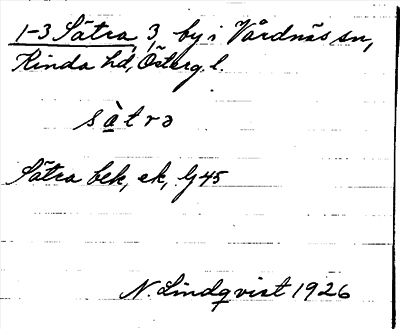 1-3 Sätra, 3, by i Vårdnäs sn,
Kinda hd, Österg. l.
sàtrə
Sätra bek, ek, Lj 45
N. Lindqvist 1926